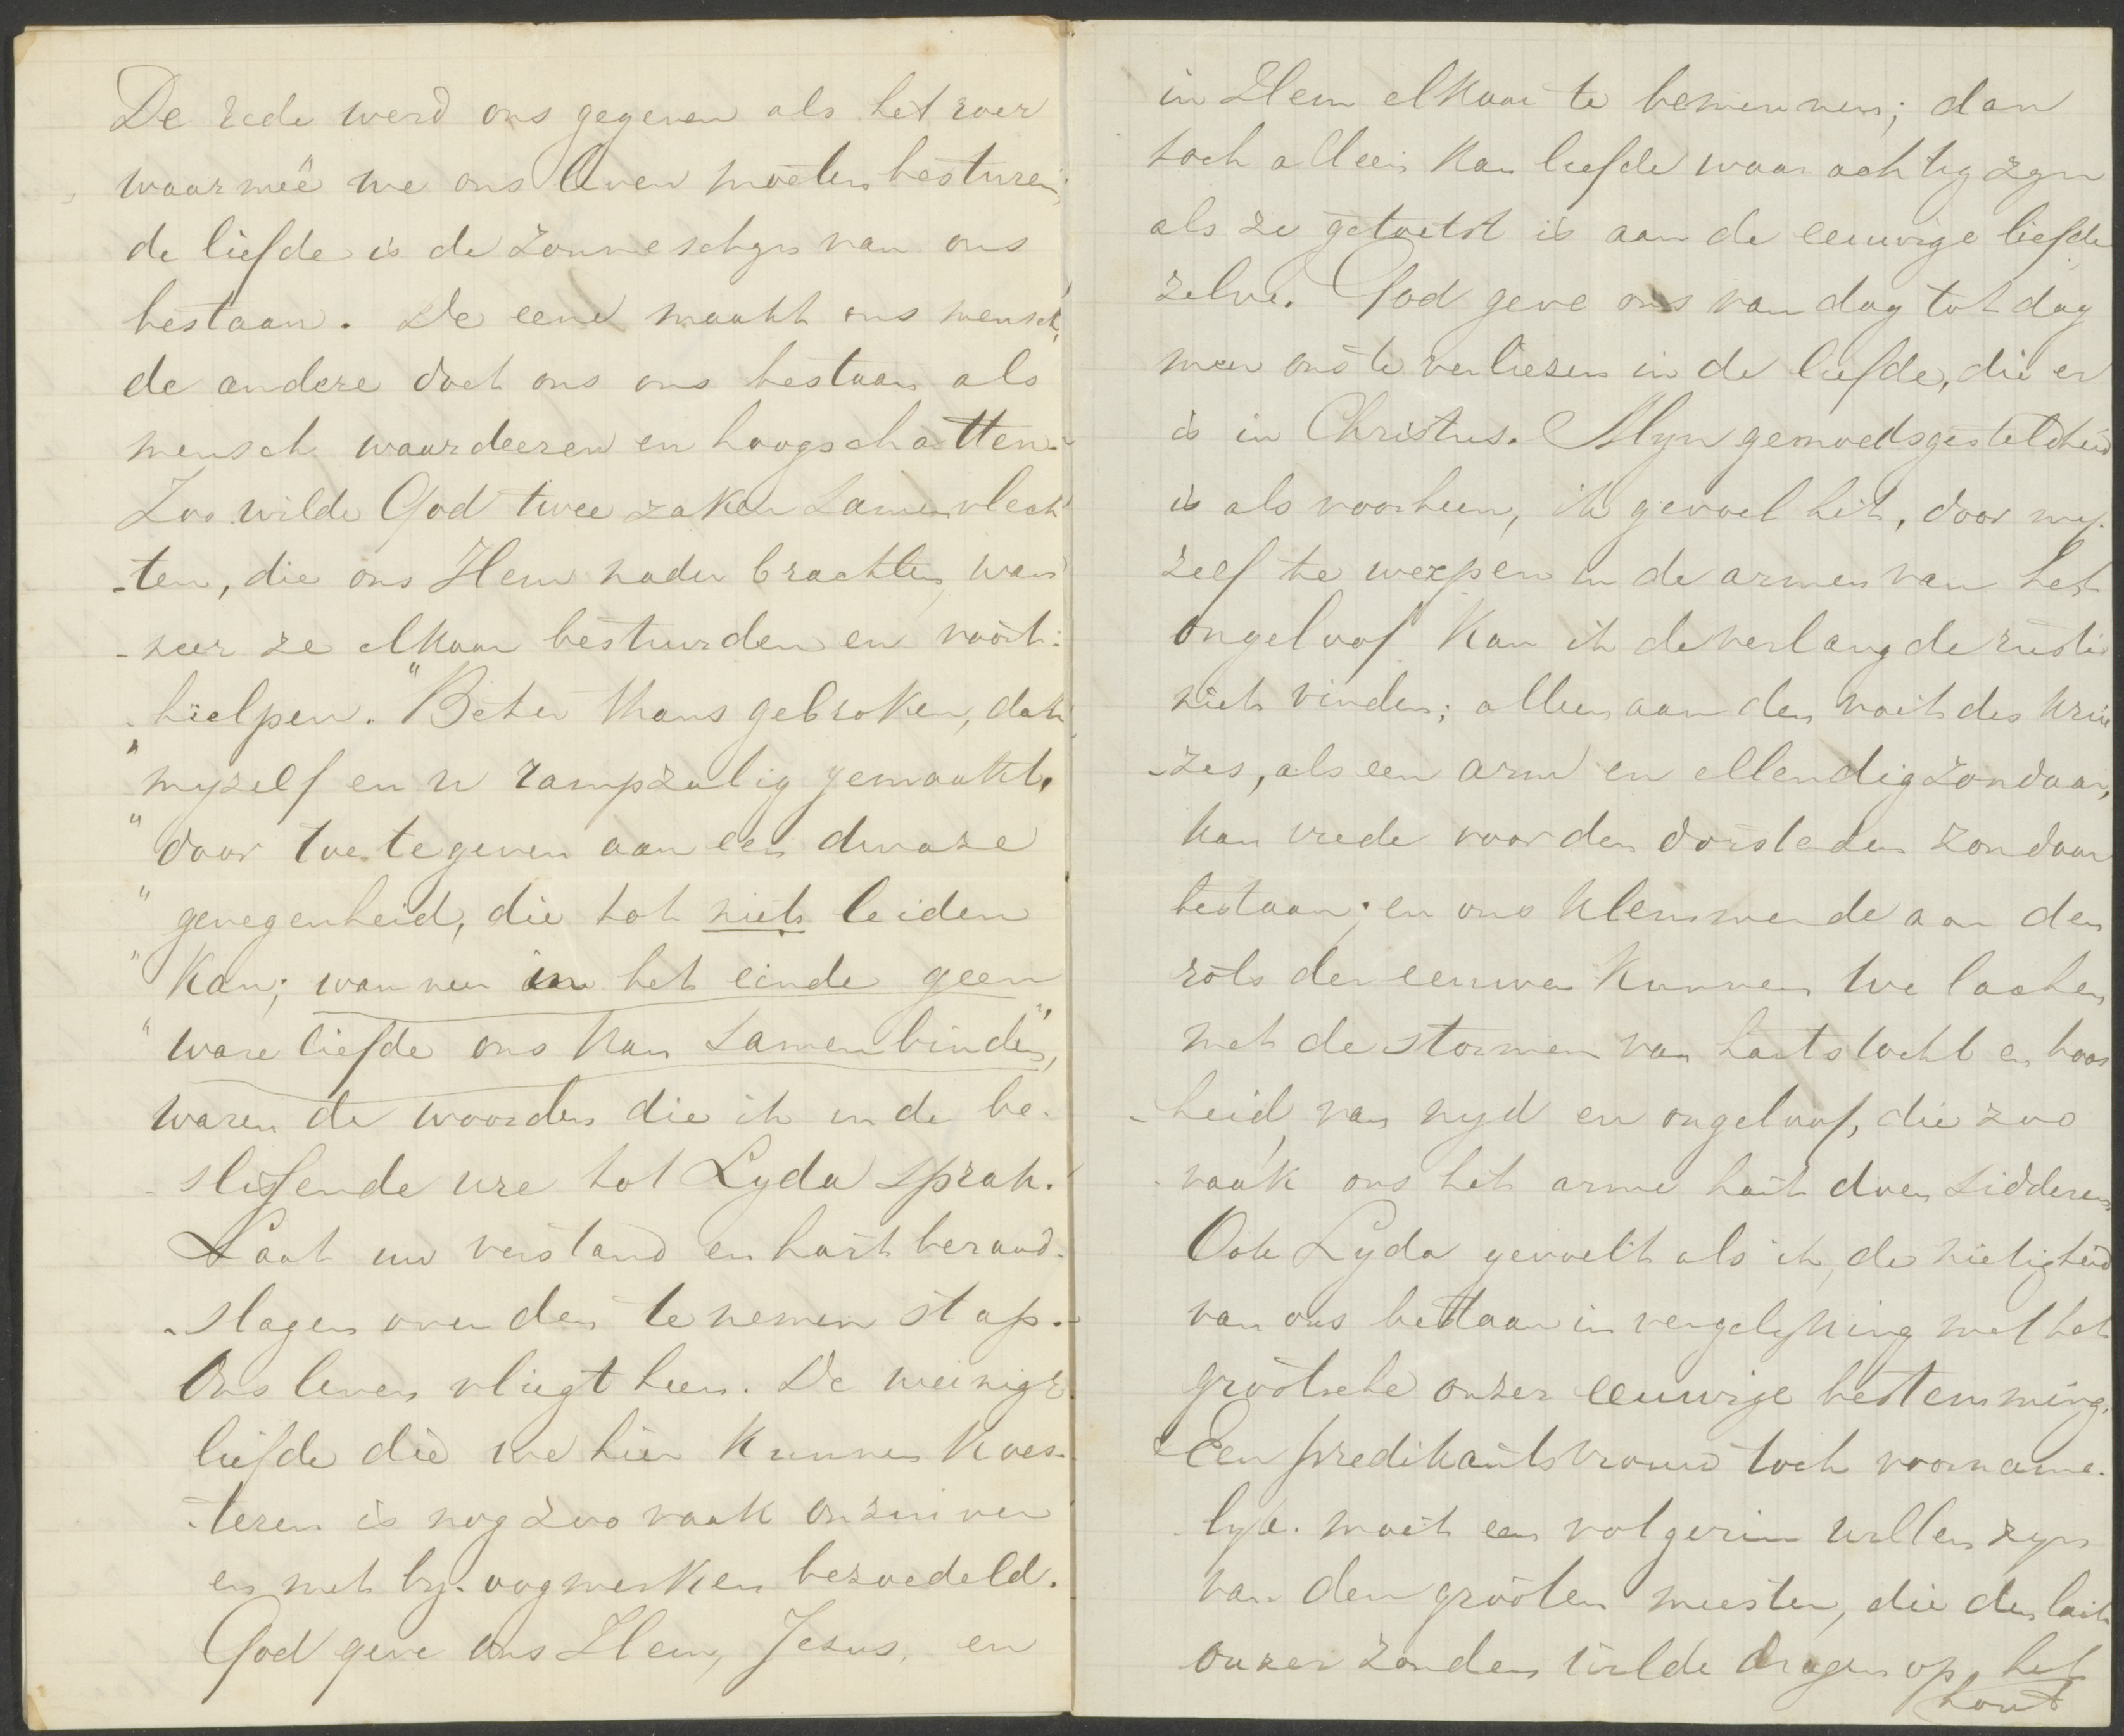 De rede werd ons gegeven als het roer
waarmeê we ons leven moeten besturen;
de liefde is de zonneschyn van ons
bestaan. De eene maakt ons mensch,
de andere doet ons ons bestaan als
mensch waardeeren en hoogschatten.
Zoo wilde God twee zaken samenvlech
-ten, die ons Hem nader brachten, wan
-neer ze elkaar bestuurden en voort-
hielpen. "Beter thans gebroken, dan
"myzelf en u rampzalig gemaakt,
"door toe te geven aan een dwaze
"genegenheid, die tot niets leiden
"kan; wanneer in het einde geen
"ware liefde ons kan samenbinden",
waren de woorden die ik in de be-
slissende ure tot Lyda sprak.
Laat uw verstand en hart beraad-
-slagen over den te nemen stap.
Ons leven vliegt heen. De weinige
liefde die we hier kunnen koes-
-teren is nog zoo vaak onzuiver
en met by-oogmerken bezoedeld.
God geve ons Hem, Jesus, en
in Hem elkaar te beminnen; dan
toch alleen kan liefde waarachtig zyn
als ze getoetst is aan de eeuwige liefde
zelve. God geve ons van dag tot dag
meer ons te verliezen in de liefde, die er
is in Christus. Myn gemoedsgesteldheid
is als voorheen, ik gevoel het, door my-
zelf te werpen in de armen van het
ongeloof kan ik de verlangde ruste
niet vinden; alleen aan den voet des krui
-zes, als een arm en ellendig zondaar,
kan vrede voor den dorstenden zondaar
bestaan; en ons klemmende aan den
rots der eeuwen kunnen we lachen
met de stormen van hartstocht en boos
-heid, van nyd en ongeloof, die zoo
vaak ons het arme hart doen sidderen.
Ook Lyda gevoelt als ik, de nietigheid
van ons bestaan in vergelyking met het
grootsche onzer eeuwige bestemming.
Een predikantsvrouw toch voorname-
lyk moet een volgerin willen zyn
van den grooten meester, die den last
onzer zonden wilde dragen op het
hout